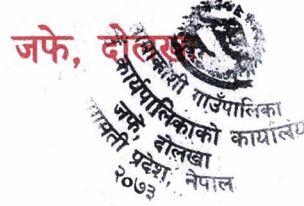 जफे, दोलखा
गाउँपालिका
कार्यपालिकाको कार्यालय
जफे, दोलखा
प्रदेश, नेपाल
२०७३